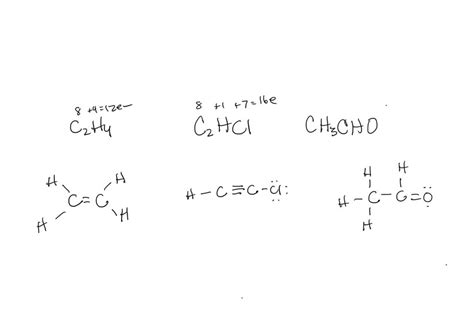 8 +4=12e-
C2H4
8 +1 +7=16e
C2HCl
CH3CHO
H H
C=C
H H
H-C≡C-Cl:
H H
H-C-C=O
H